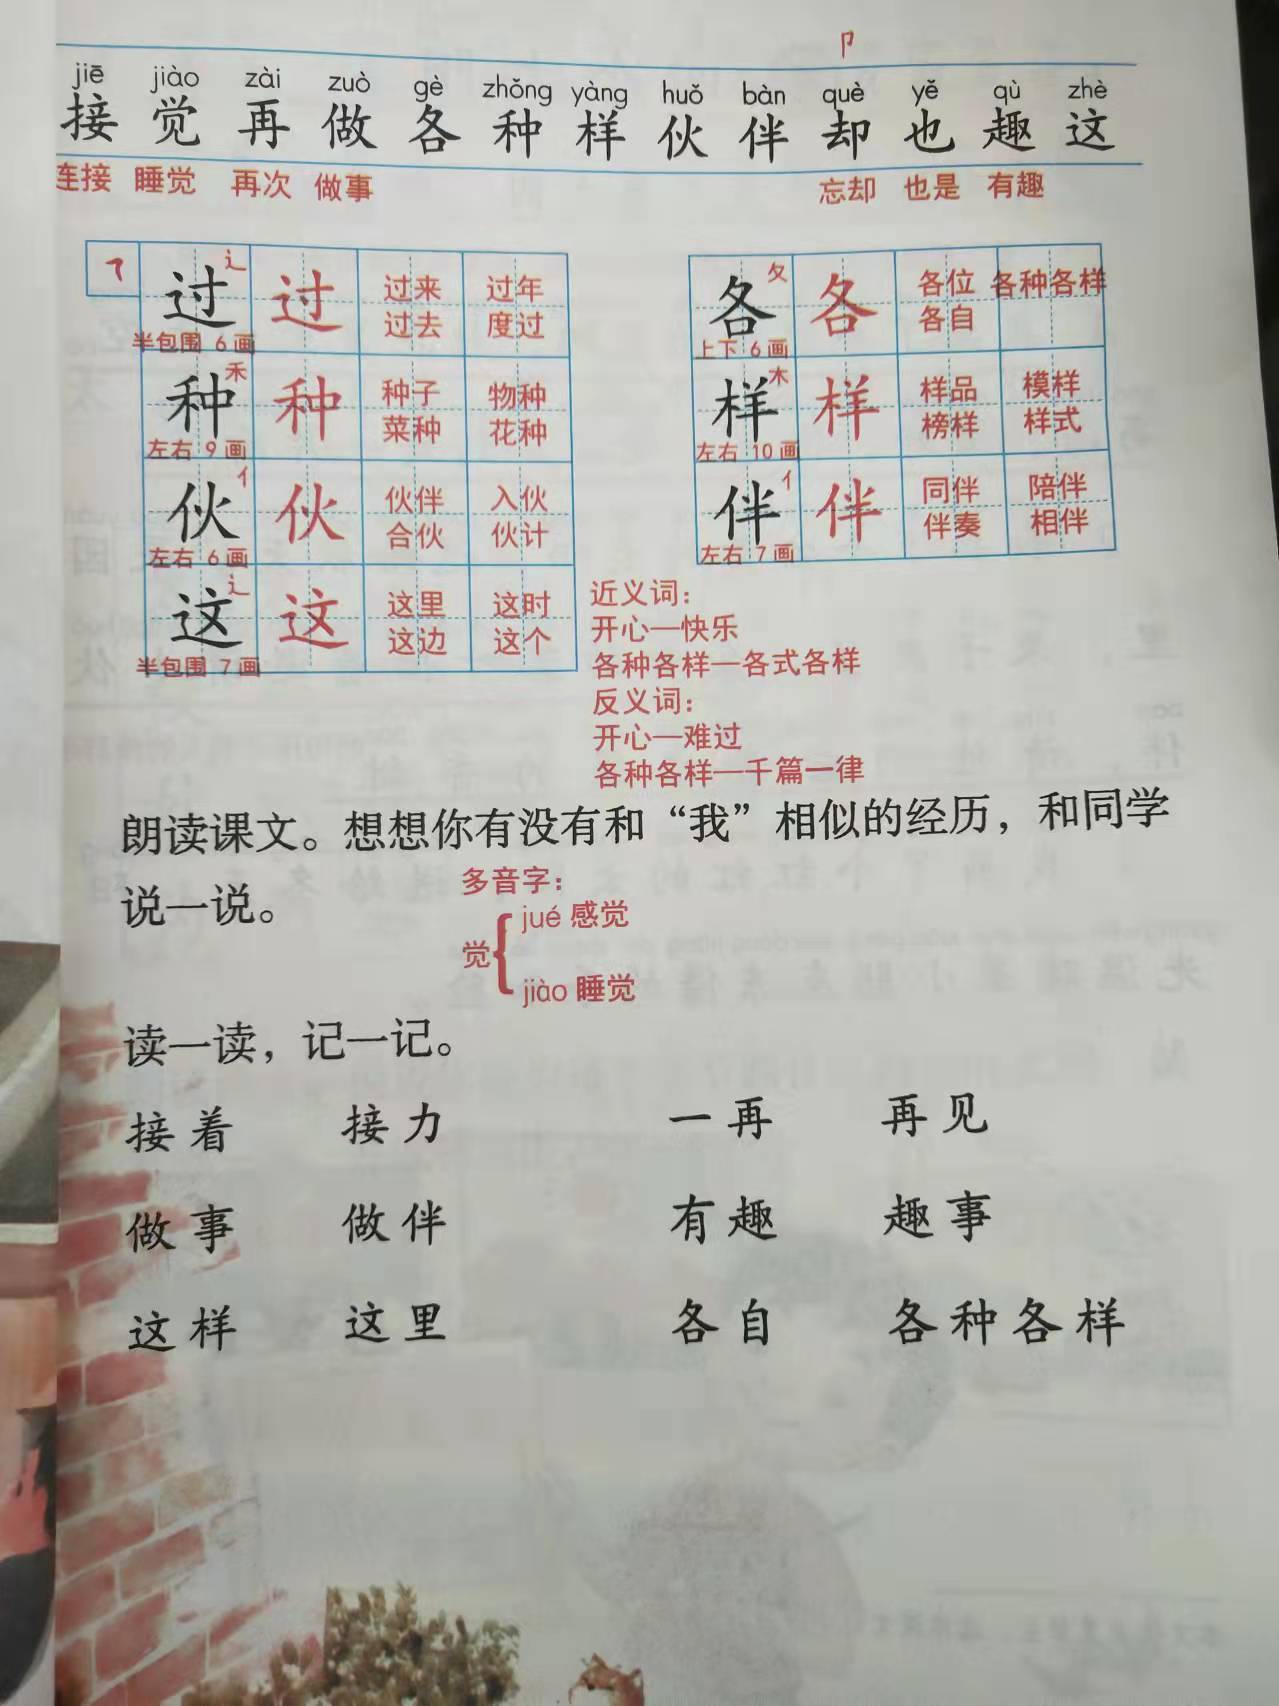 卩
jiē jiào zài zuò gè zhǒng yàng huǒ bàn què yě qù zhè
接 觉 再 做 各 种 样 伙 伴 却 也 趣 这
连接 睡觉 再次 做事 忘却 也是 有趣
㇋ 过 辶 过 过来 过年
过去 度过
半包围 6画
种 禾 种 种子 物种
菜种 花种
左右 9画
伙 亻 伙 伙伴 入伙
合伙 伙计
左右 6画
这 辶 这 这里 这时
这边 这个
半包围 7画
各 夂 各 各位 各种各样
各自
上下 6画
样 木 样 样品 模样
榜样 样式
左右 10画
伴 亻 伴 同伴 陪伴
伴奏 相伴
左右 7画
近义词：
开心—快乐
各种各样—各式各样
反义词：
开心—难过
各种各样—千篇一律
朗读课文。想想你有没有和“我”相似的经历，和同学
说一说。
多音字：
觉 { jué 感觉
jiào 睡觉
读一读，记一记。
接着 接力 一再 再见
做事 做伴 有趣 趣事
这样 这里 各自 各种各样